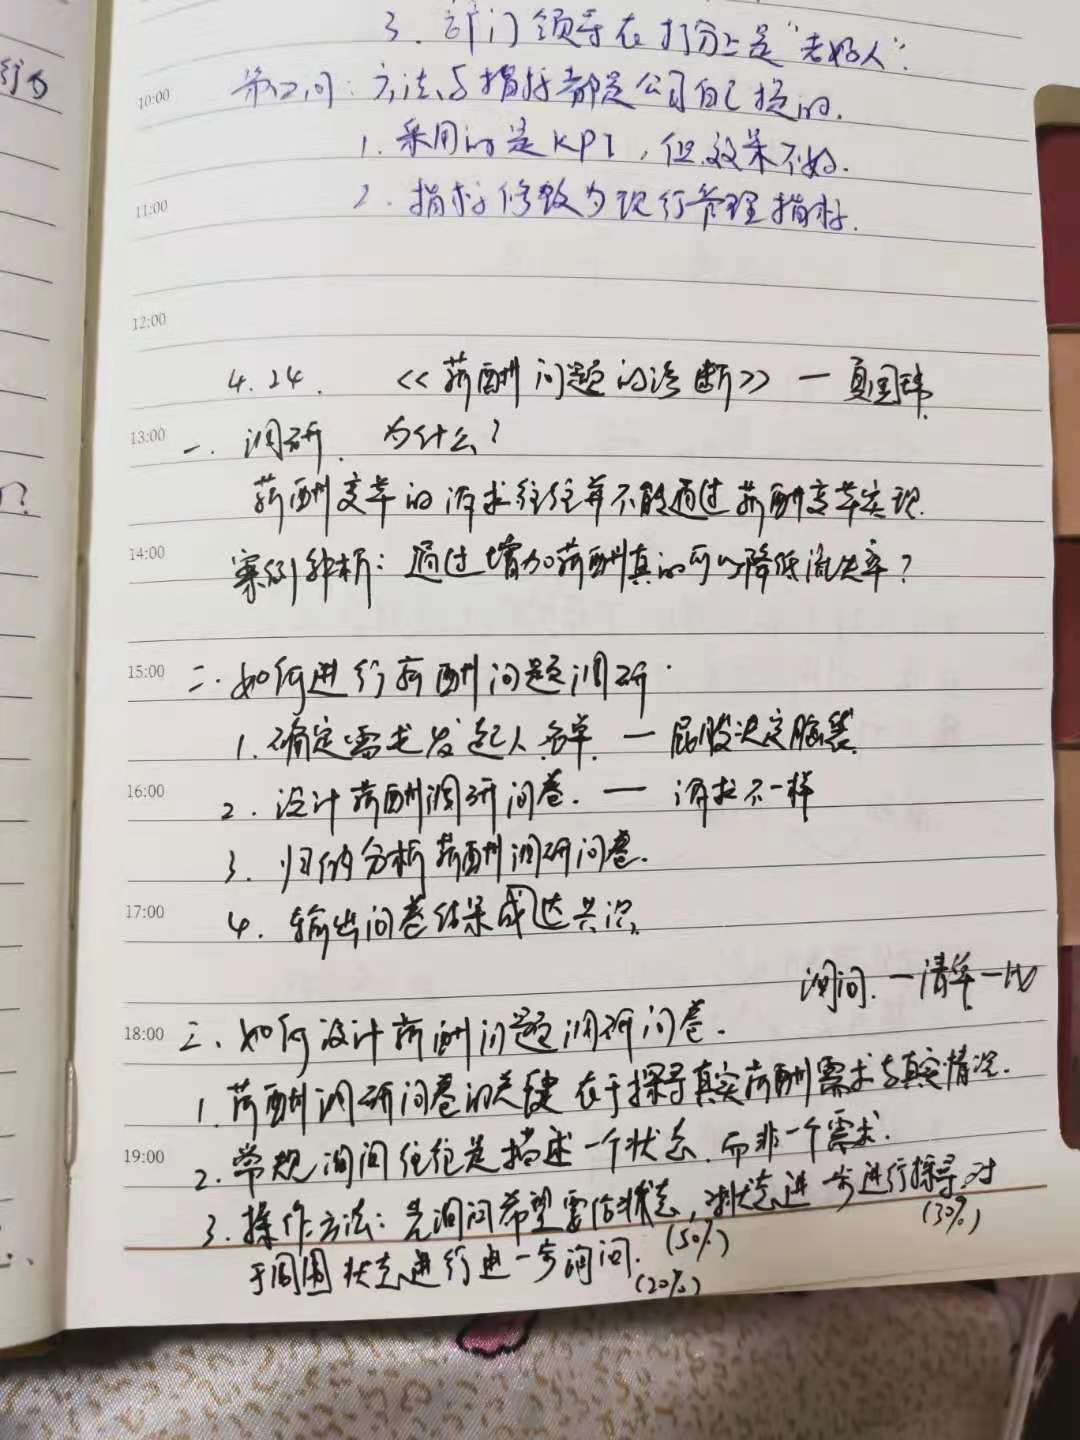 3. 部门领导在打分上是"老好人".
行为
10:00
第四问: 方法与指标都是公司自己提的.
1. 采用的是KPI, 但效果不好.
11:00
2. 指标修改为现行管理指标.
12:00
4.24. 《薪酬问题的诊断》 —
13:00
一. 调研. 为什么?
薪酬变革的诉求往往并不能通过薪酬变革实现.
14:00
案例解析: 通过增加薪酬真的可以降低流失率?
15:00
二. 如何进行薪酬问题调研.
1. 确定需求发起人名单. — 屁股决定脑袋.
16:00
2. 设计薪酬调研问卷. — 诉求不一样
3. 归纳分析薪酬调研问卷.
17:00
4. 输出问卷结果或达共识.
询问. 一清单一
18:00
三、如何设计薪酬问题调研问卷.
1. 薪酬调研问卷的关键在于探寻真实薪酬需求与真实情况.
19:00
2. 常规询问往往是描述一个状态. 而非一个需求.
3. 操作方法: 先询问希望要的状态, 对状态进一步进行探寻. 对
(50%)
(30%)
于周围状态进行进一步询问.
(20%)